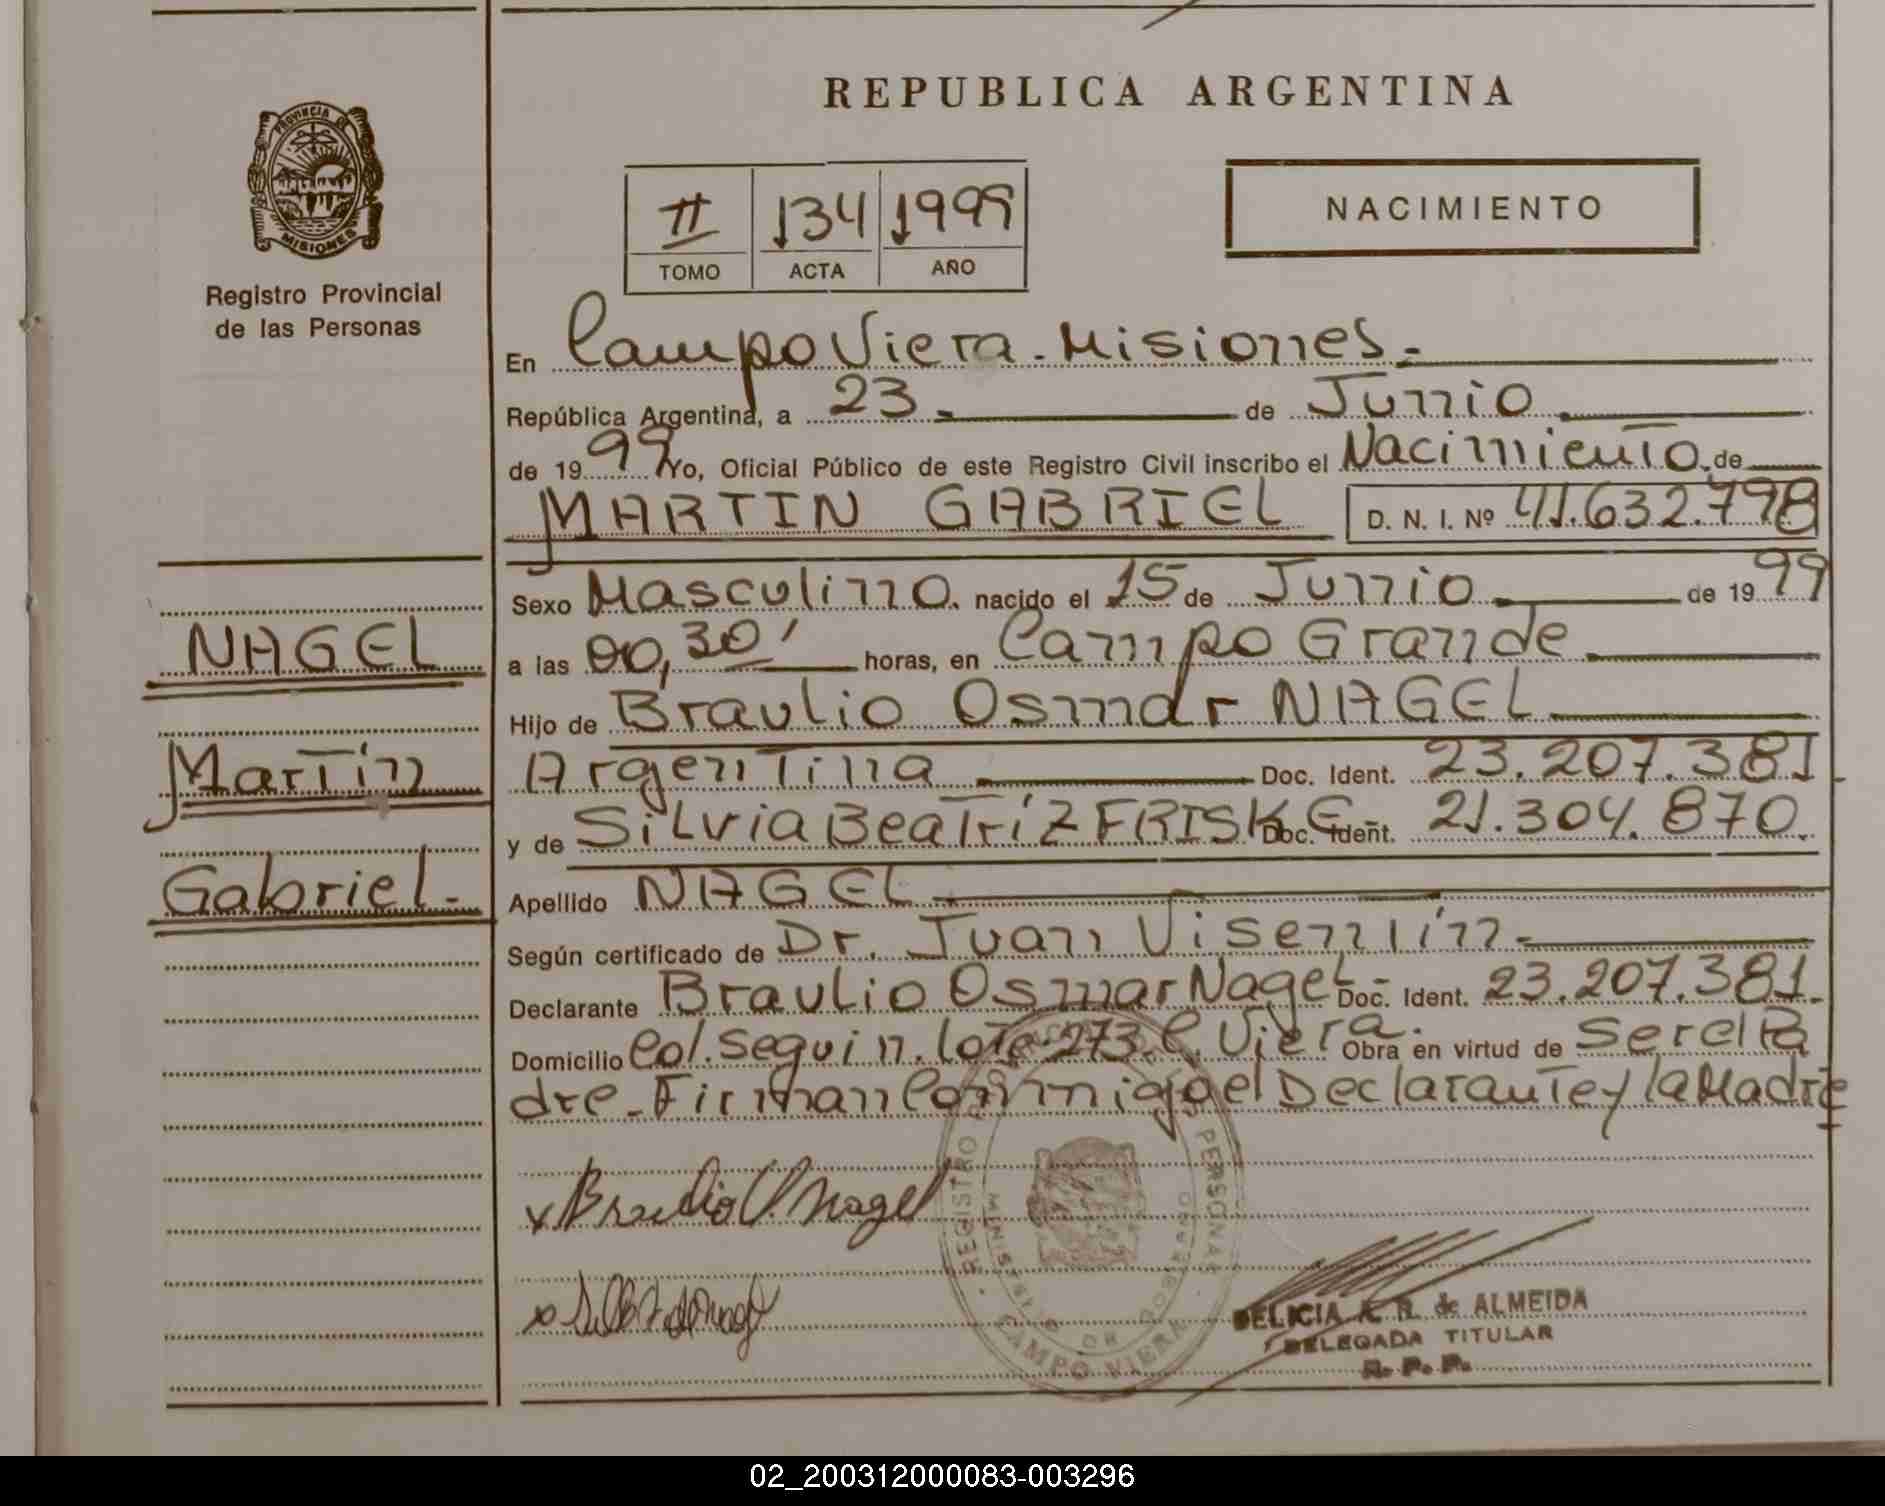 REPUBLICA ARGENTINA
PROVINCIA DE
MISIONES
Registro Provincial
de las Personas
II 134 1999
TOMO ACTA AÑO
NACIMIENTO
En Campo Viera - Misiones.-
República Argentina, a 23.- de Junio
de 1999 Yo, Oficial Público de este Registro Civil inscribo el Nacimiento, de
MARTIN GABRIEL D. N. I. Nº 41.632.798
Sexo Masculino. nacido el 15 de Junio de 1999
NAGEL
a las 00,30' horas, en Campo Grande
Hijo de Braulio Osmar NAGEL
Martín
Argentina Doc. Ident. 23.207.381
y de Silvia Beatríz FRISKE- Doc. Ident. 21.304.870.
Gabriel-
Apellido NAGEL
Según certificado de Dr. Juan Visennlín-
Declarante Braulio Osmar Nagel- Doc. Ident. 23.207.381.
Domicilio Col. Seguin. lote 273. C. Viera. Obra en virtud de Ser el Pa
dre - Firman Conmigo el Declarante y la Madre
x Braulio O. Nagel
REGISTRO PERSONAS
MINISTERIO DE GOBIERNO
CAMPO VIERA
DELICIA A. R. de ALMEIDA
DELEGADA TITULAR
R. P. P.
02_200312000083-003296